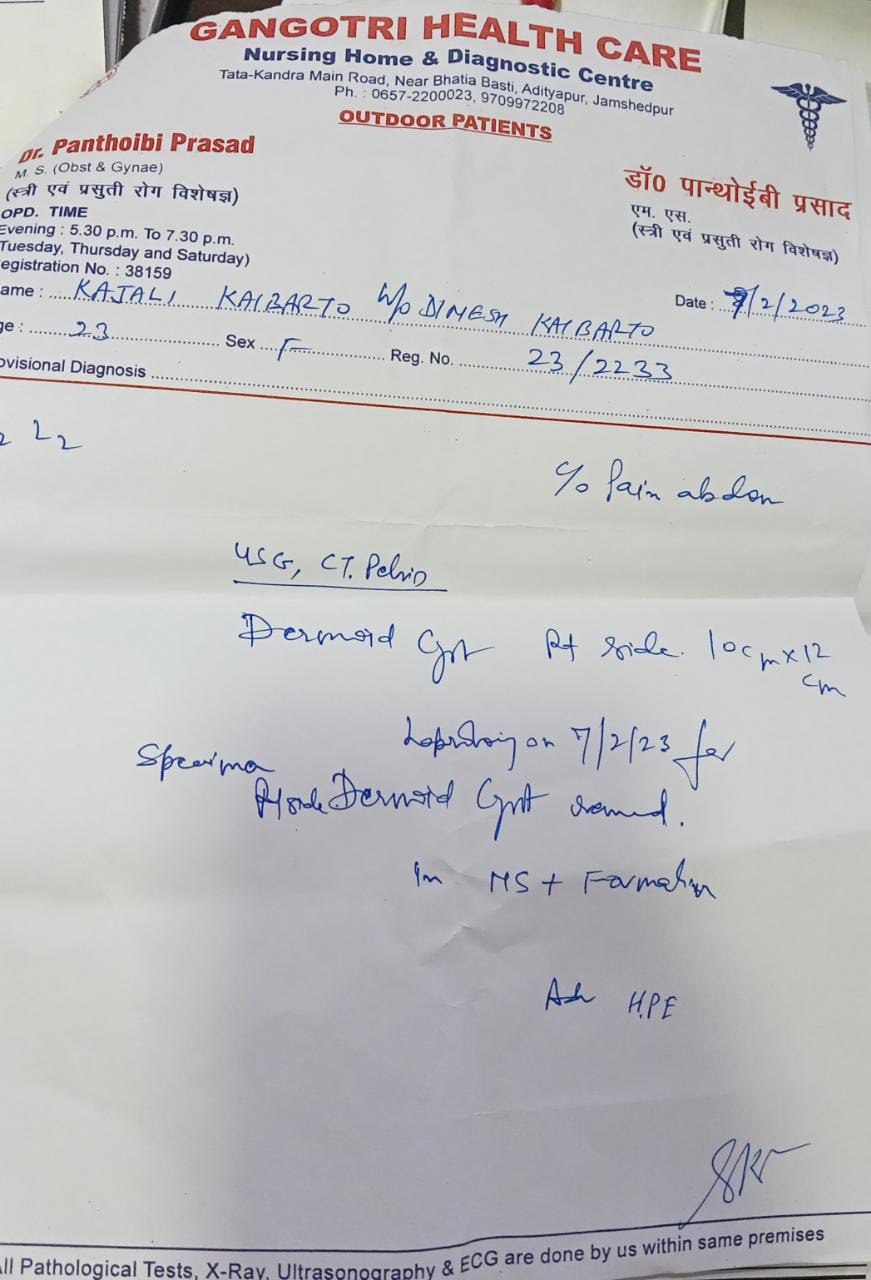 GANGOTRI HEALTH CARE
Nursing Home & Diagnostic Centre
Tata-Kandra Main Road, Near Bhatia Basti, Adityapur, Jamshedpur
Ph. : 0657-2200023, 9709972208
OUTDOOR PATIENTS
Dr. Panthoibi Prasad
M. S. (Obst & Gynae)
(स्त्री एवं प्रसुती रोग विशेषज्ञ)
OPD. TIME
Evening : 5.30 p.m. To 7.30 p.m.
Tuesday, Thursday and Saturday)
egistration No. : 38159
डॉ0 पान्थोईबी प्रसाद
एम. एस.
(स्त्री एवं प्रसुती रोग विशेषज्ञ)
ame : KAJALI KAIBARTO W/o DINESH KAIBARTO
Date : 7/2/2023
ge : 23 Sex F Reg. No. 23/2233
ovisional Diagnosis
L2
c/o Pain abdon
USG, CT. Pelvis
Dermoid Cyst Rt side. 10cm x 12 cm
on 7/2/23 for
Rt side Dermoid Cyst removed.
in NS + Formalin
Adv HPE
All Pathological Tests, X-Ray, Ultrasonography & ECG are done by us within same premises